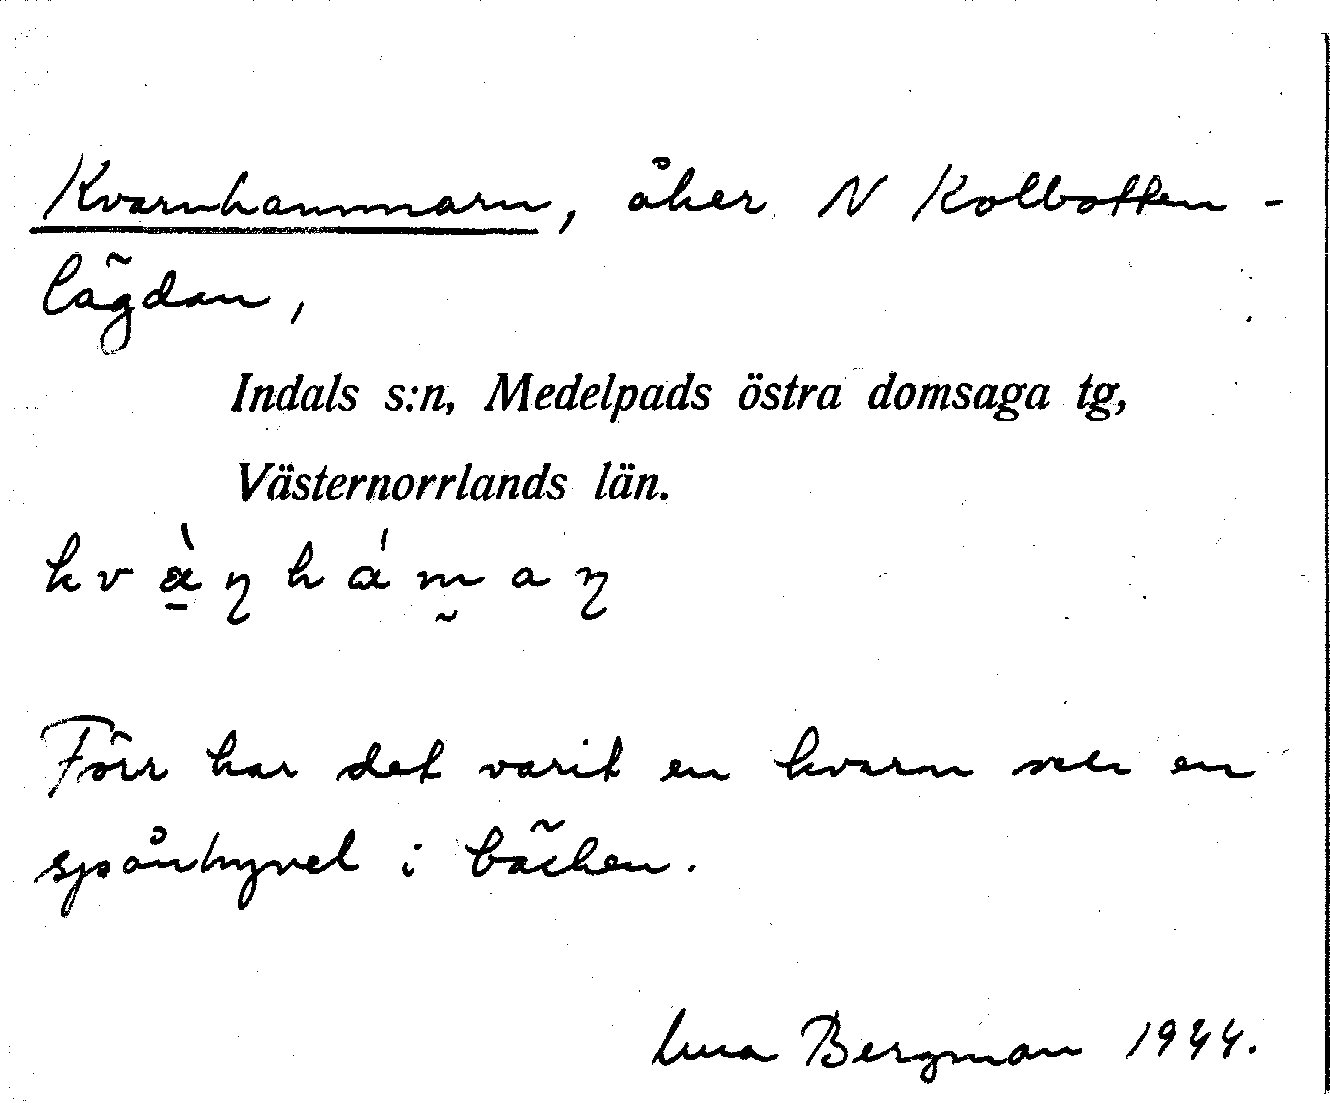 Kvarnhammarn, åker N Kolbotten-
lägdan,
Indals s:n, Medelpads östra domsaga tg,
Västernorrlands län.
kvàṉhámaɳ
Förr har det varit en kvarn och en
spånhyvel i bäcken.
Bergman 1944.